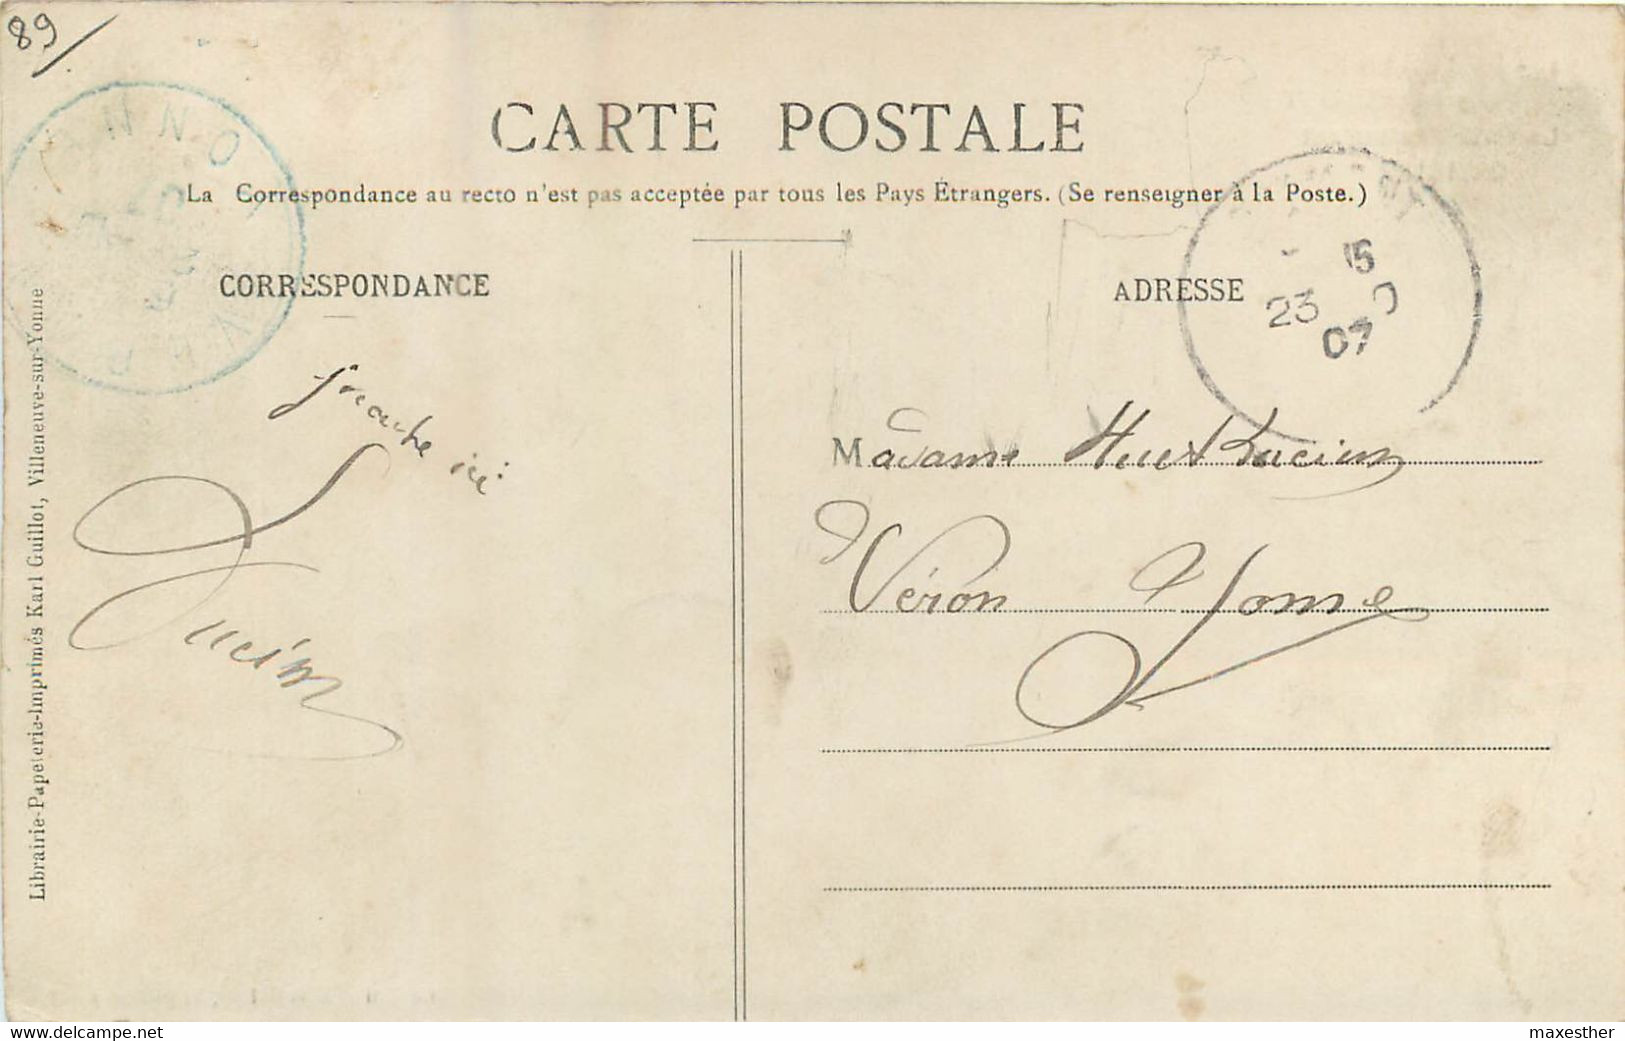 89
CARTE POSTALE
La Correspondance au recto n'est pas acceptée par tous les Pays Étrangers. (Se renseigner à la Poste.)
CORRESPONDANCE
ADRESSE
15
23
07
ici
Lucien
Madame Huet Lucien
Véron Yonne
Librairie-Papeterie-Imprimés Karl Guillot, Villeneuve-sur-Yonne
www.delcampe.net
maxesther